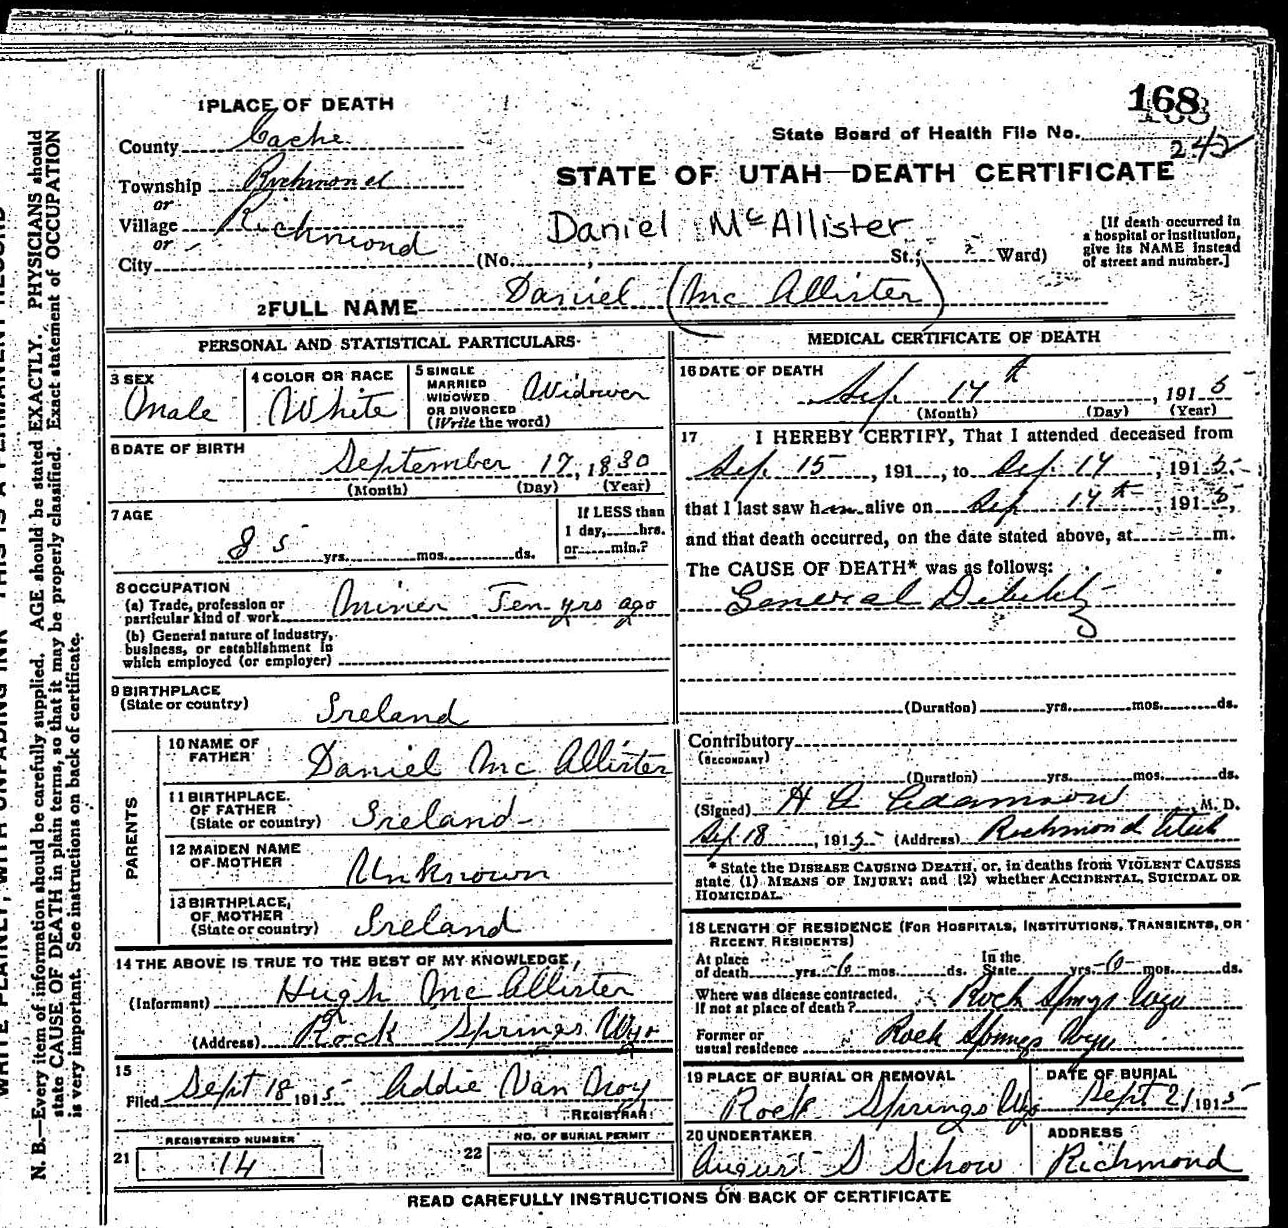 168
1 PLACE OF DEATH
County Cache
State Board of Health File No.
242
Township Richmond
STATE OF UTAH—DEATH CERTIFICATE
or
Village Richmond
Daniel McAllister
or
City (No. , St.; Ward)
[If death occurred in
a hospital or institution,
give its NAME instead
of street and number.]
2 FULL NAME Daniel (McAllister)
PERSONAL AND STATISTICAL PARTICULARS
3 SEX
Male
4 COLOR OR RACE
White
5 SINGLE
MARRIED
WIDOWED
OR DIVORCED
(Write the word)
Widower
6 DATE OF BIRTH
September 17, 1830
(Month) (Day) (Year)
7 AGE
85 yrs. mos. ds.
If LESS than
1 day, hrs.
or min.?
8 OCCUPATION
(a) Trade, profession or
particular kind of work Miner Ten yrs ago
(b) General nature of industry,
business, or establishment in
which employed (or employer)
9 BIRTHPLACE
(State or country)
Ireland
PARENTS
10 NAME OF
FATHER
Daniel McAllister
11 BIRTHPLACE
OF FATHER
(State or country)
Ireland
12 MAIDEN NAME
OF MOTHER
Unknown
13 BIRTHPLACE
OF MOTHER
(State or country)
Ireland
14 THE ABOVE IS TRUE TO THE BEST OF MY KNOWLEDGE,
(Informant) Hugh McAllister
(Address) Rock Springs Wyo
15
Filed Sept 18 1915 Addie Van
REGISTRAR
REGISTERED NUMBER
21 14
NO. OF BURIAL PERMIT
22
MEDICAL CERTIFICATE OF DEATH
16 DATE OF DEATH
Sep. 14th, 1915
(Month) (Day) (Year)
17 I HEREBY CERTIFY, That I attended deceased from
Sep. 15, 191 , to Sep. 14, 1915
that I last saw him alive on Sep 14th, 1915,
and that death occurred, on the date stated above, at m.
The CAUSE OF DEATH* was as follows:
General Debility
(Duration) yrs. mos. ds.
Contributory
(SECONDARY)
(Duration) yrs. mos. ds.
(Signed) H A Adamson, M. D.
Sep 18, 1915 (Address) Richmond Utah
* State the DISEASE CAUSING DEATH, or, in deaths from VIOLENT CAUSES
state (1) MEANS OF INJURY; and (2) whether ACCIDENTAL, SUICIDAL OR
HOMICIDAL.
18 LENGTH OF RESIDENCE (FOR HOSPITALS, INSTITUTIONS, TRANSIENTS, OR
RECENT RESIDENTS)
At place
of death yrs. 6 mos. ds.
In the
State yrs. 6 mos. ds.
Where was disease contracted,
if not at place of death? Rock Spngs Wyo
Former or
usual residence Rock Spngs Wyo
19 PLACE OF BURIAL OR REMOVAL
Rock Springs Wyo
DATE OF BURIAL
Sept 21 1915
20 UNDERTAKER
August S Schow
ADDRESS
Richmond
READ CAREFULLY INSTRUCTIONS ON BACK OF CERTIFICATE
N. B.—Every item of information should be carefully supplied. AGE should be stated EXACTLY. PHYSICIANS should
state CAUSE OF DEATH in plain terms, so that it may be properly classified. Exact statement of OCCUPATION
is very important. See instructions on back of certificate.